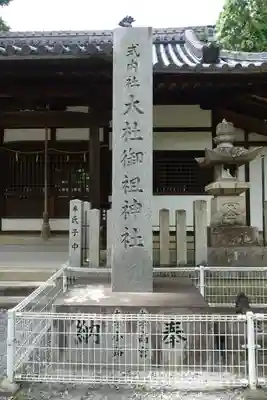 式内社 大社御祖神社
奉 氏子中
奉
納